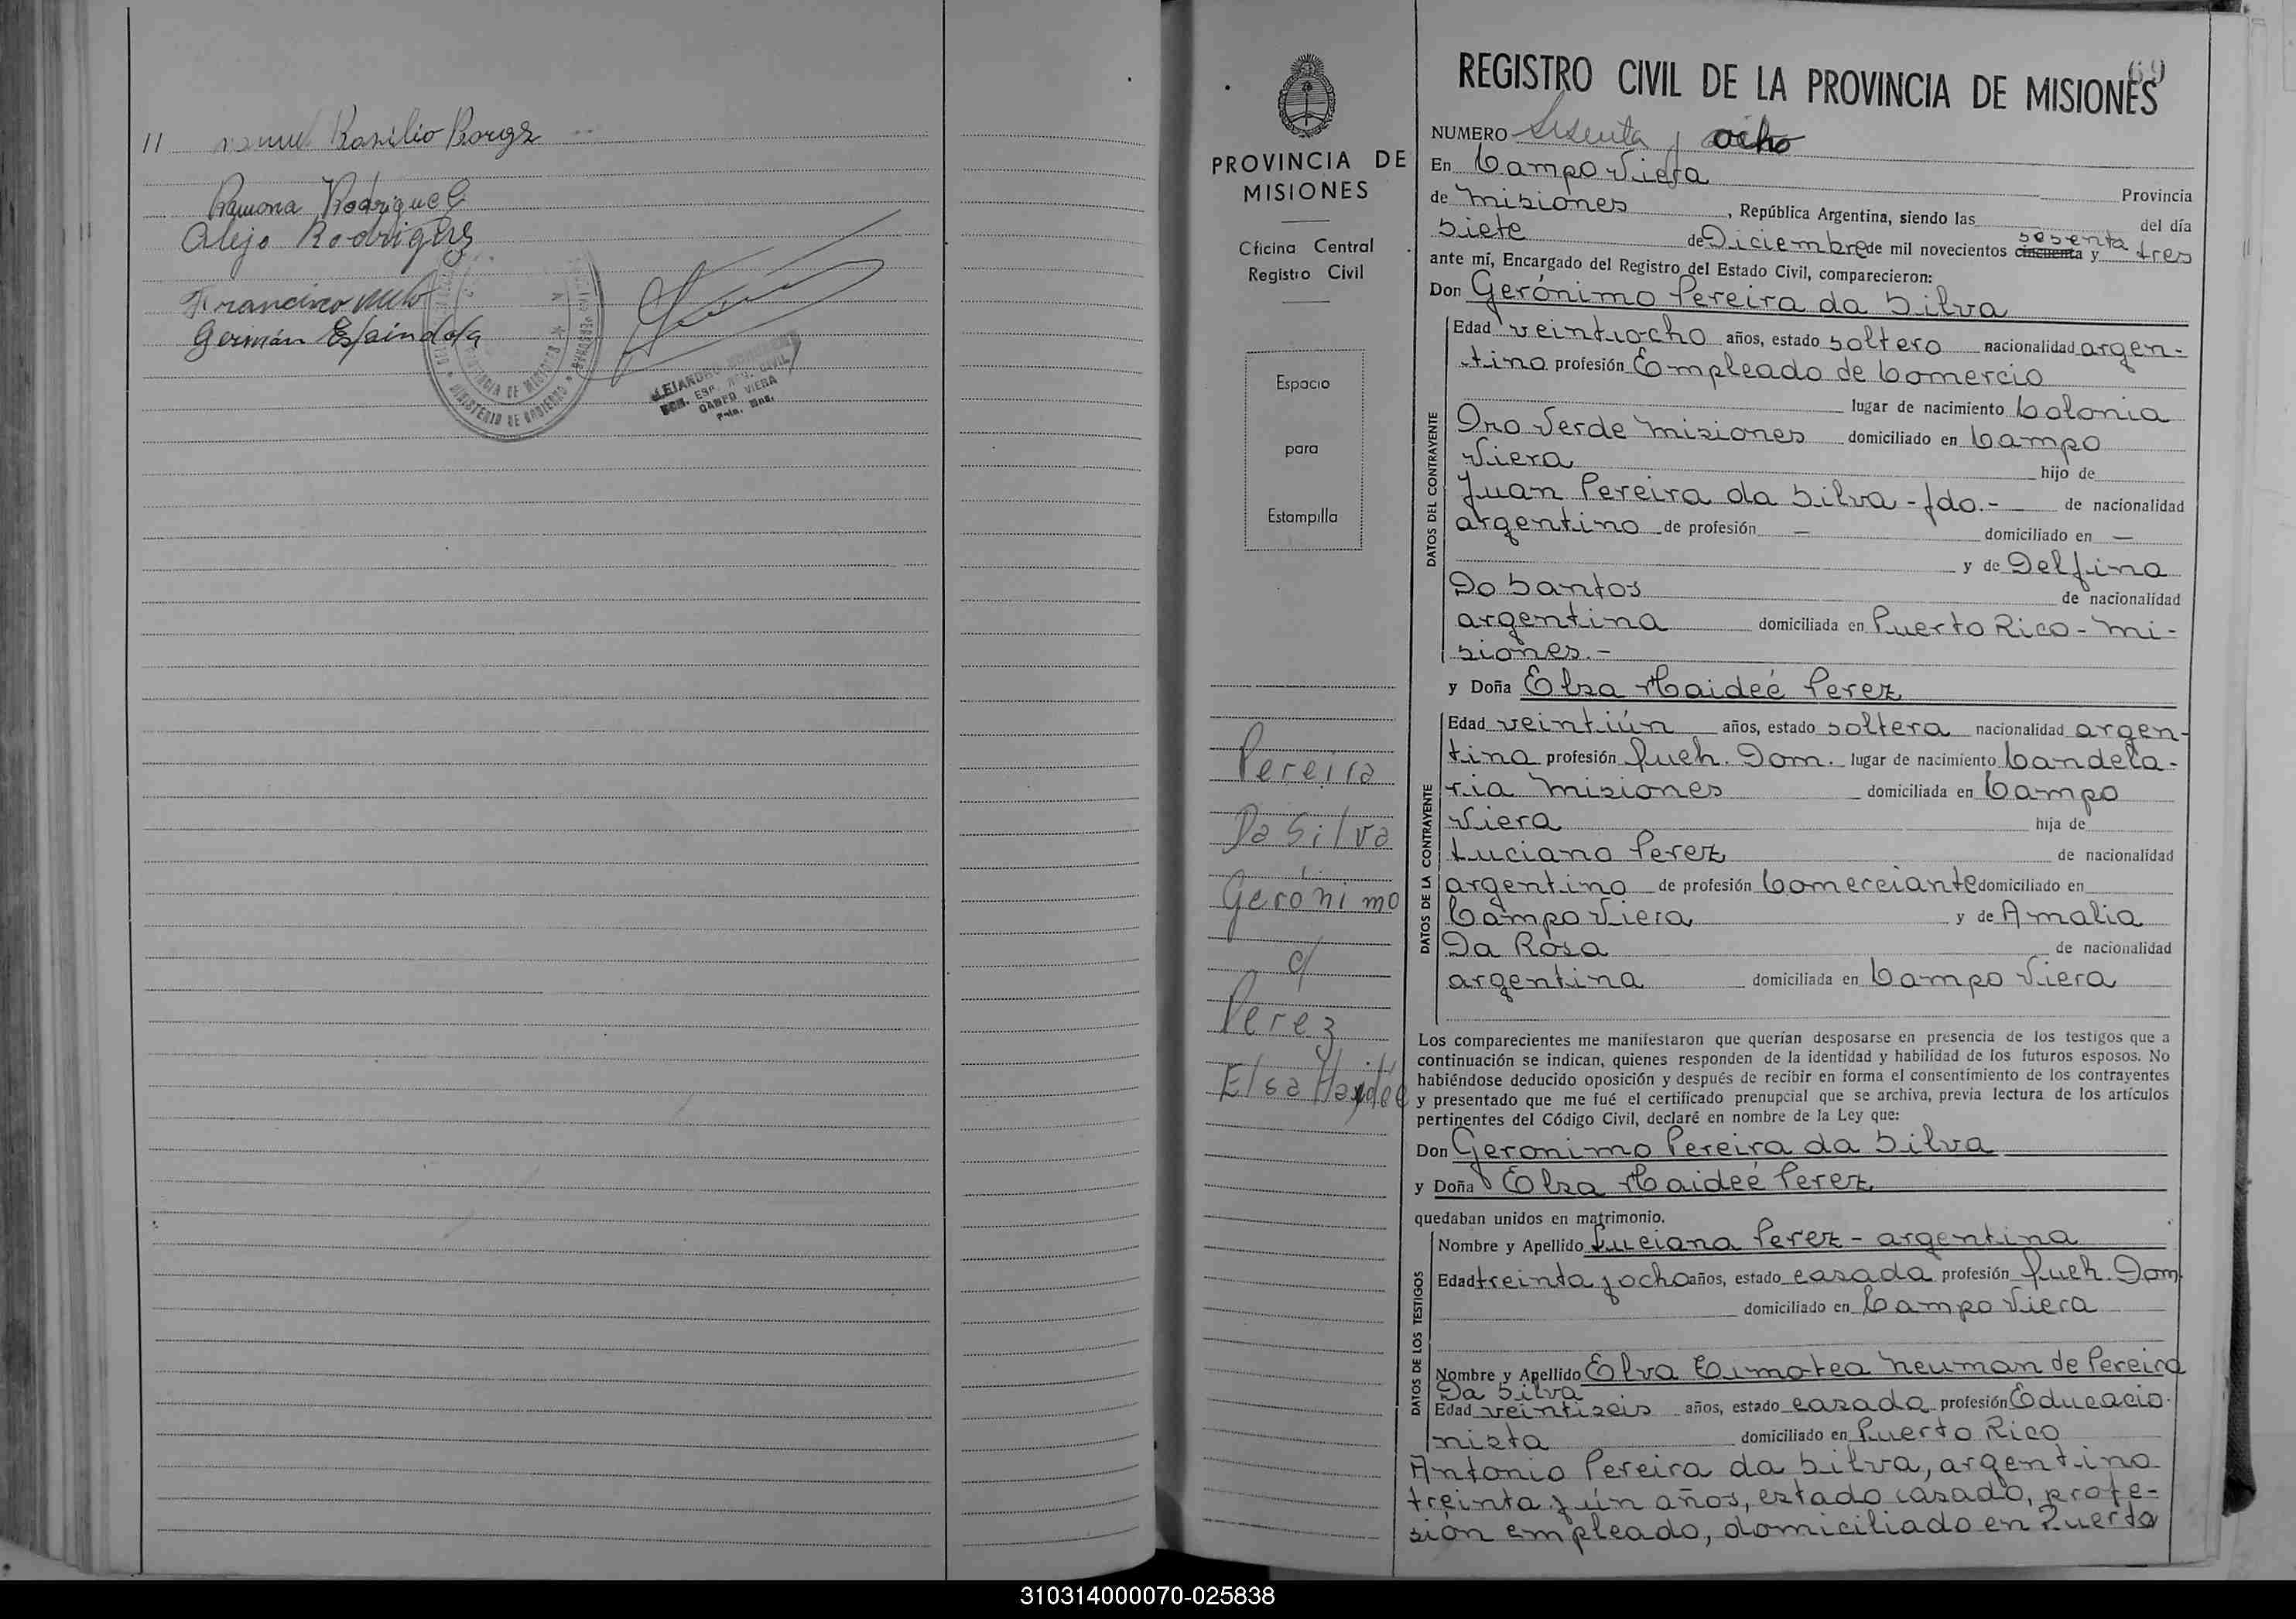 11 Basilio Borge
Ramona Rodriguez
Alejo Rodrigues
Francisco
Germán Espindola
PROVINCIA DE MISIONES
MINISTERIO DE GOBIERNO
REG. CIVIL
CAMPO VIERA
Pcia. Mns.
PROVINCIA DE
MISIONES
Oficina Central
Registro Civil
Espacio
para
Estampilla
Pereira
Da Silva
Gerónimo
c/
Perez
Elsa Haydée
69
REGISTRO CIVIL DE LA PROVINCIA DE MISIONES
NUMERO Sesenta y ocho
En Campo Viera Provincia
de Misiones, República Argentina, siendo las del día
siete de Diciembre de mil novecientos cincuenta sesenta y tres
ante mí, Encargado del Registro del Estado Civil, comparecieron:
Don Gerónimo Pereira da Silva
DATOS DEL CONTRAYENTE
Edad veintiocho años, estado soltero nacionalidad argen-
tino profesión Empleado de Comercio
lugar de nacimiento Colonia
Oro Verde Misiones domiciliado en Campo
Viera hijo de
Juan Pereira da Silva - fdo. - de nacionalidad
argentino de profesión — domiciliado en —
y de Delfina
Do Santos de nacionalidad
argentina domiciliada en Puerto Rico - Mi-
siones. -
y Doña Elsa Haideé Perez
DATOS DE LA CONTRAYENTE
Edad veintiún años, estado soltera nacionalidad argen-
tina profesión Queh. Dom. lugar de nacimiento Candela-
ria Misiones domiciliada en Campo
Viera hija de
Luciano Perez de nacionalidad
argentino de profesión Comerciante domiciliado en
Campo Viera y de Amalia
Da Rosa de nacionalidad
argentina domiciliada en Campo Viera
Los comparecientes me manifestaron que querían desposarse en presencia de los testigos que a
continuación se indican, quienes responden de la identidad y habilidad de los futuros esposos. No
habiéndose deducido oposición y después de recibir en forma el consentimiento de los contrayentes
y presentado que me fué el certificado prenupcial que se archiva, previa lectura de los artículos
pertinentes del Código Civil, declaré en nombre de la Ley que:
Don Geronimo Pereira da Silva
y Doña Elsa Haideé Perez
quedaban unidos en matrimonio.
DATOS DE LOS TESTIGOS
Nombre y Apellido Luciana Perez - argentina
Edad treinta y ocho años, estado casada profesión Queh. Dom.
domiciliado en Campo Viera
Nombre y Apellido Elva Timotea Neuman de Pereira
Da Silva
Edad veintiseis años, estado casada profesión Educacio-
nista domiciliado en Puerto Rico
Antonio Pereira da Silva, argentino
treinta y ún años, estado casado, profe-
sión empleado, domiciliado en Puerto
310314000070-025838